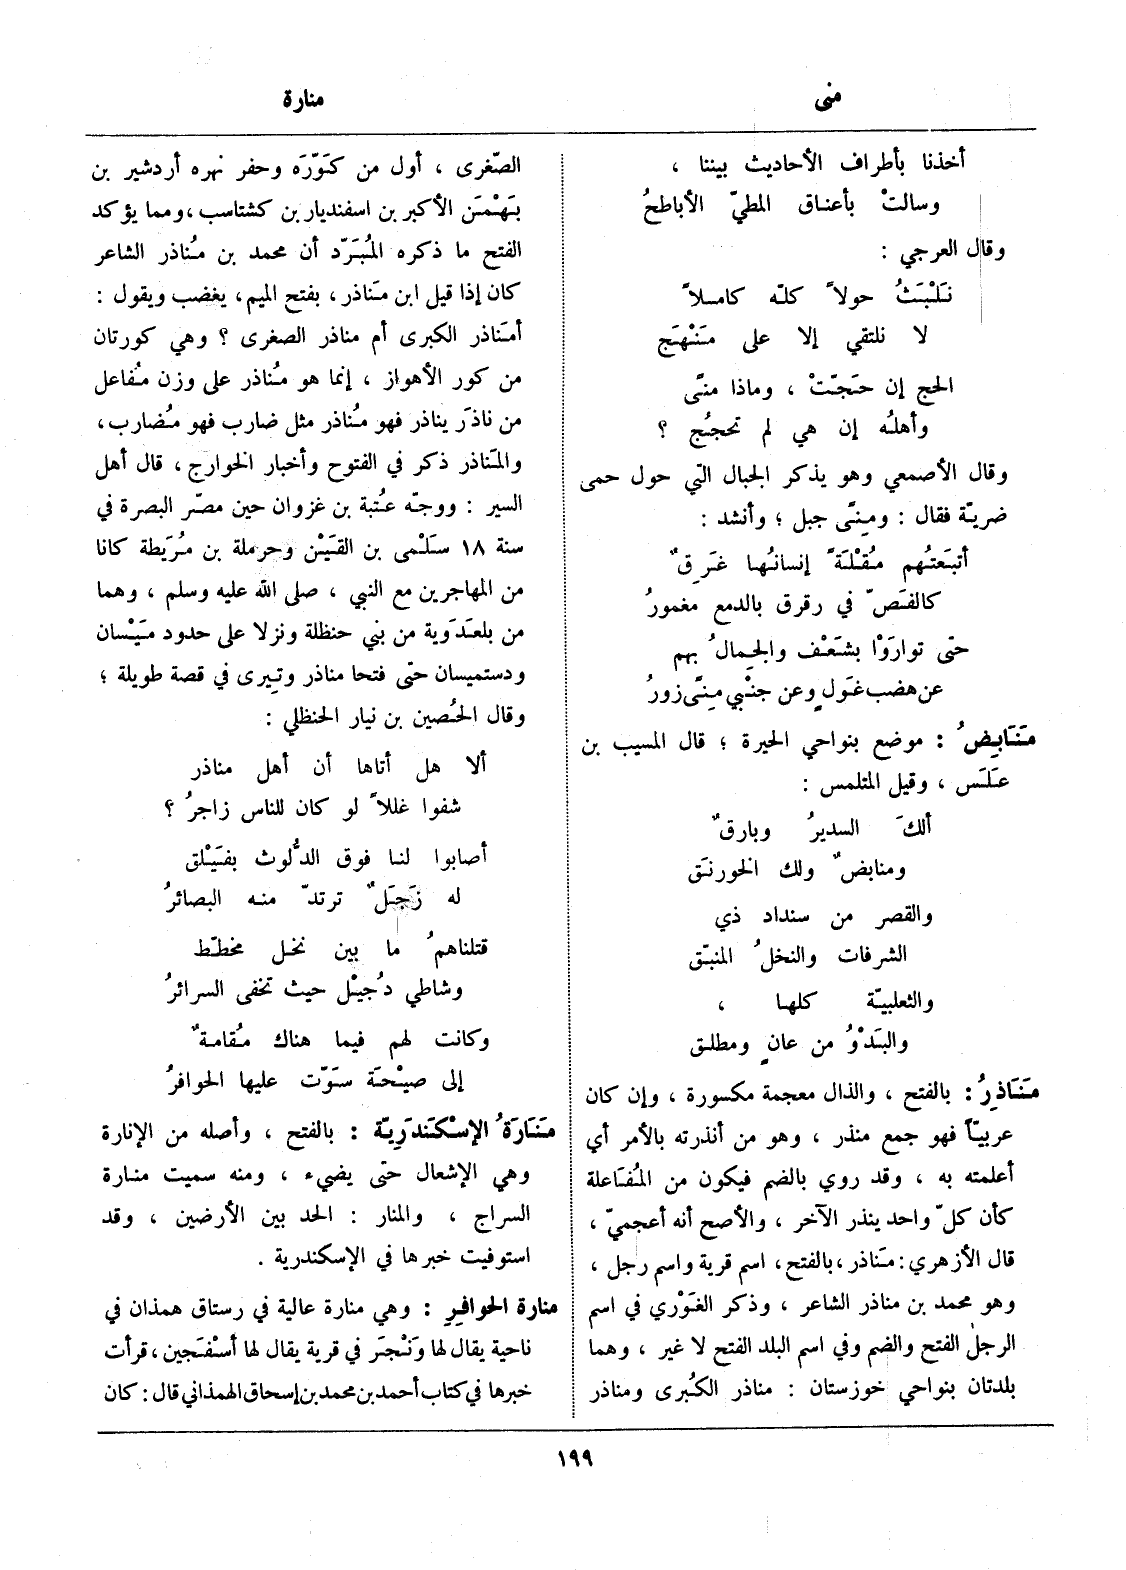 منى
منارة
أخذنا بأطراف الأحاديث بيننا ،
وسالتْ بأعناق المطيّ الأباطحُ
وقال العرجي :
نَلْبَثُ حولاً كلّه كاملاً
لا نلتقي إلا على مَنْهَج
الحج إن حَجّتْ ، وماذا منًى
وأهلُه إن هي لم تحججُ ؟
وقال الأصمعي وهو يذكر الجبال التي حول حمى
ضريّة فقال : ومِنًى جبل ؛ وأنشد :
أتبعَتُهم مُقْلَةً إنسانُها غَرِقٌ
كالفَصّ في رقرق بالدمع مغمورُ
حتى توارَوْا بشَعْف والجِمالُ بهم
عن هضب غَولٍ وعن جنْبي مِنًى زورُ
مَنَابِضُ : موضع بنواحي الحيرة ؛ قال المسيب بن
عَلَس ، وقيل المتلمس :
ألكَ السديرُ وبارقٌ
ومنابضٌ ولك الخورنَق
والقصر من سنداد ذي
الشرفات والنخلُ المنبّق
والثعلبيّة كلها ،
والبَدْوُ من عانٍ ومطلق
مَنَاذِرُ : بالفتح ، والذال معجمة مكسورة ، وإن كان
عربيّاً فهو جمع منذر ، وهو من أنذرته بالأمر أي
أعلمته به ، وقد روي بالضم فيكون من المُفاعلة
كأن كلّ واحد ينذر الآخر ، والأصح أنه أعجميّ ،
قال الأزهري : مَناذر ، بالفتح ، اسم قرية واسم رجل ،
وهو محمد بن مناذر الشاعر ، وذكر الغَوْري في اسم
الرجل الفتح والضم وفي اسم البلد الفتح لا غير ، وهما
بلدتان بنواحي خوزستان : مناذر الكُبرى ومناذر
الصّغرى ، أول من كَوّرَه وحفر نهره أردشير بن
بَهْمَن الأكبر بن اسفنديار بن كشتاسب ، ومما يؤكد
الفتح ما ذكره المُبَرّد أن محمد بن مُناذر الشاعر
كان إذا قيل ابن مَناذر ، بفتح الميم ، يغضب ويقول :
أمَناذر الكبرى أم مناذر الصغرى ؟ وهي كورتان
من كور الأهواز ، إنما هو مُناذر على وزن مُفاعل
من ناذَرَ يناذر فهو مُناذر مثل ضارب فهو مُضارب ،
والمَناذر ذكر في الفتوح وأخبار الخوارج ، قال أهل
السير : ووجّه عُتبة بن غزوان حين مصّر البصرة في
سنة ١٨ سَلْمى بن القَيْن وحرملة بن مُرَيطة كانا
من المهاجرين مع النبي ، صلى الله عليه وسلم ، وهما
من بلعَدَوية من بني حنظلة ونزلا على حدود مَيْسان
ودستميسان حتى فتحا مناذر وتِيرى في قصة طويلة ؛
وقال الحُصين بن نيار الحنظلي :
ألا هل أتاها أن أهل مناذر
شفوا غللاً لو كان للناس زاجرُ ؟
أصابوا لنا فوق الدُّلوث بفَيْلق
له زَجَلٌ ترتدّ منه البصائرُ
قتلناهمُ ما بين نخل مخطّط
وشاطي دُجيْل حيث تخفى السرائرُ
وكانت لهم فيما هناك مُقامةٌ
إلى صيْحَة سَوّت عليها الحوافرُ
مَنَارَةُ الإسْكَنْدَرِيّة : بالفتح ، وأصله من الإنارة
وهي الإشعال حتى يضيء ، ومنه سميت منارة
السراج ، والمنار : الحد بين الأرضين ، وقد
استوفيت خبرها في الإسكندرية .
منارة الحوافرِ : وهي منارة عالية في رستاق همذان في
ناحية يقال لها وَنْجَر في قرية يقال لها أسْفَجين ، قرأت
خبرها في كتاب أحمد بن محمد بن إسحاق الهمذاني قال : كان
١٩٩